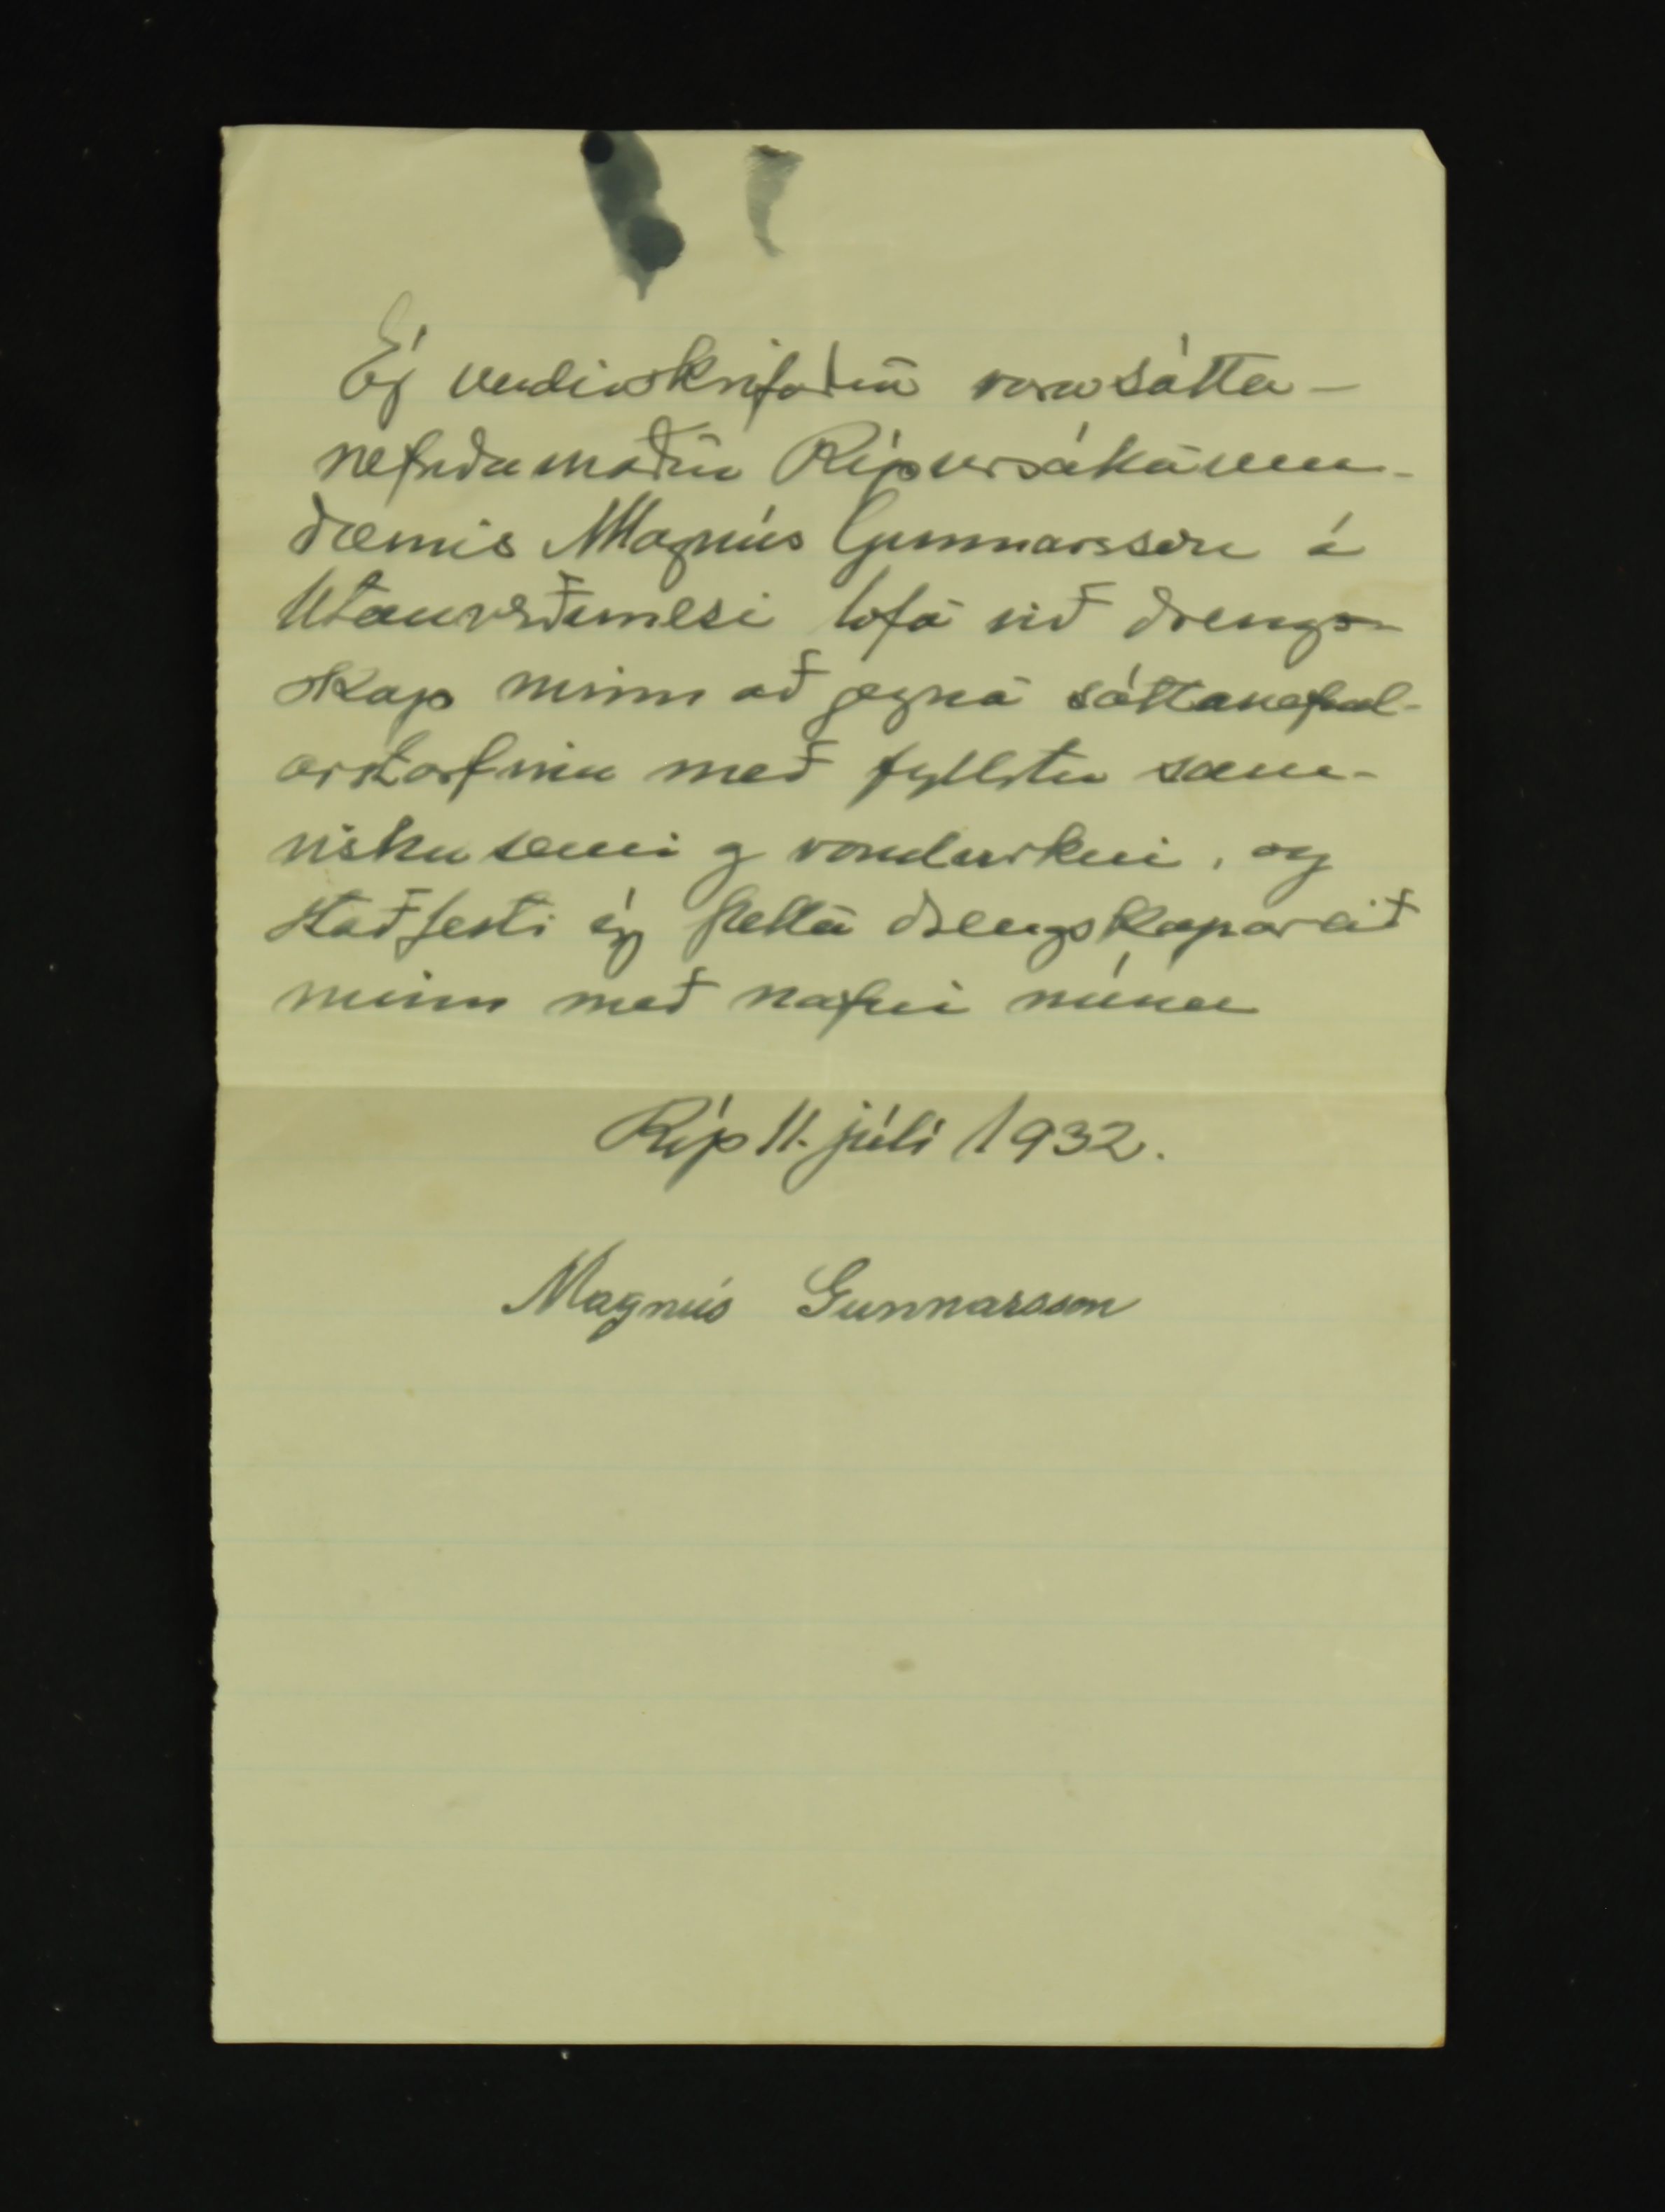 Ég undirskrifaður varasátta-
nefndamaður Rípursáttaum-
dæmis Magnús Gunnarsson á
Utanverðunesi lofa við drengs-
skap minn að gegna sáttanefnd-
arstarfinu með fyllstu sam-
viskusemi og vandvirkni, og
staðfesti ég þetta drengskaparheit
minn með nafni mínu
Ríp 11. júlí 1932.
Magnús Gunnarsson